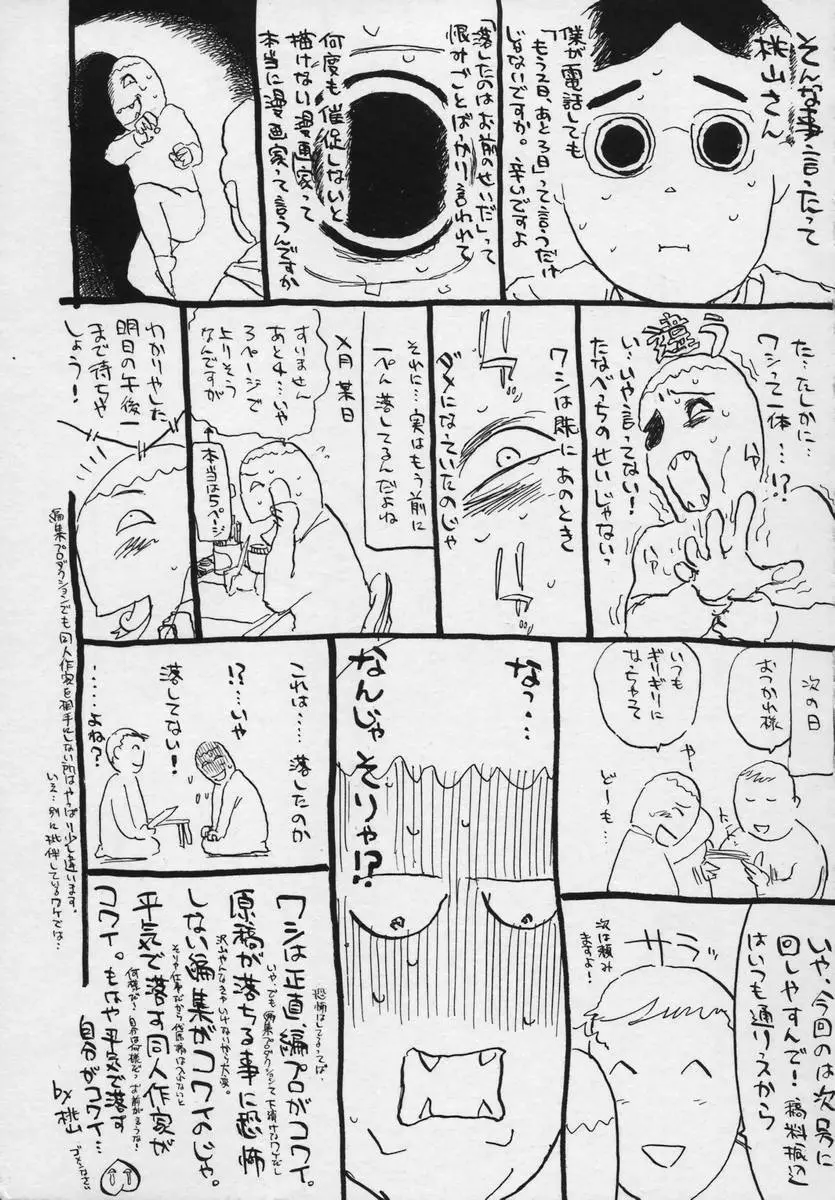 そんな事言ったって
桃山さん
僕が電話しても
「もう2日、あと3日」って言うだけ
じゃないですか。辛いですよ
「落したのはお前のせいだ」って
恨みごとばっかり言われて
何度も催促しないと
描けない漫画家って
本当に漫画家って言うんですか
た…たしかに…
ワシって一体…!?
違う
い…いや言ってない!
たなべっちのせいじゃないっ
ワシは既にあのとき
ダメになっていたのじゃ
それに…実はもう前に
一ぺん落してるんだよね
×月某日
すいません
あと4…いや
3ページで
上りそう
なんですが
↑本当は5ページ
わかりやした
明日の午後一
まで待ちや
しょう!
次の日
おつかれ様
いつも
ギリギリに
なっちゃって
やー
どーも…
いや、今回のは次号に
回しやすんで!稿料振込
はいつも通りっスから
サラッ
次は頼み
ますよ!
なっ…
なんじゃそりゃ!?
これは……落したのか
!?……いや
落してない!
……よね?
ワシは正直、編プロがコワイ。
原稿が落ちる事に恐怖
しない編集がコワイのじゃ。
平気で落す同人作家が
コワイ。もはや平気で落す
自分がコワイ…
by桃山
ゴメンなさい
編集プロダクションでも同人作家を相手にしない所はやっぱり少し違います。
いえ…別に批伴しているワケでは…